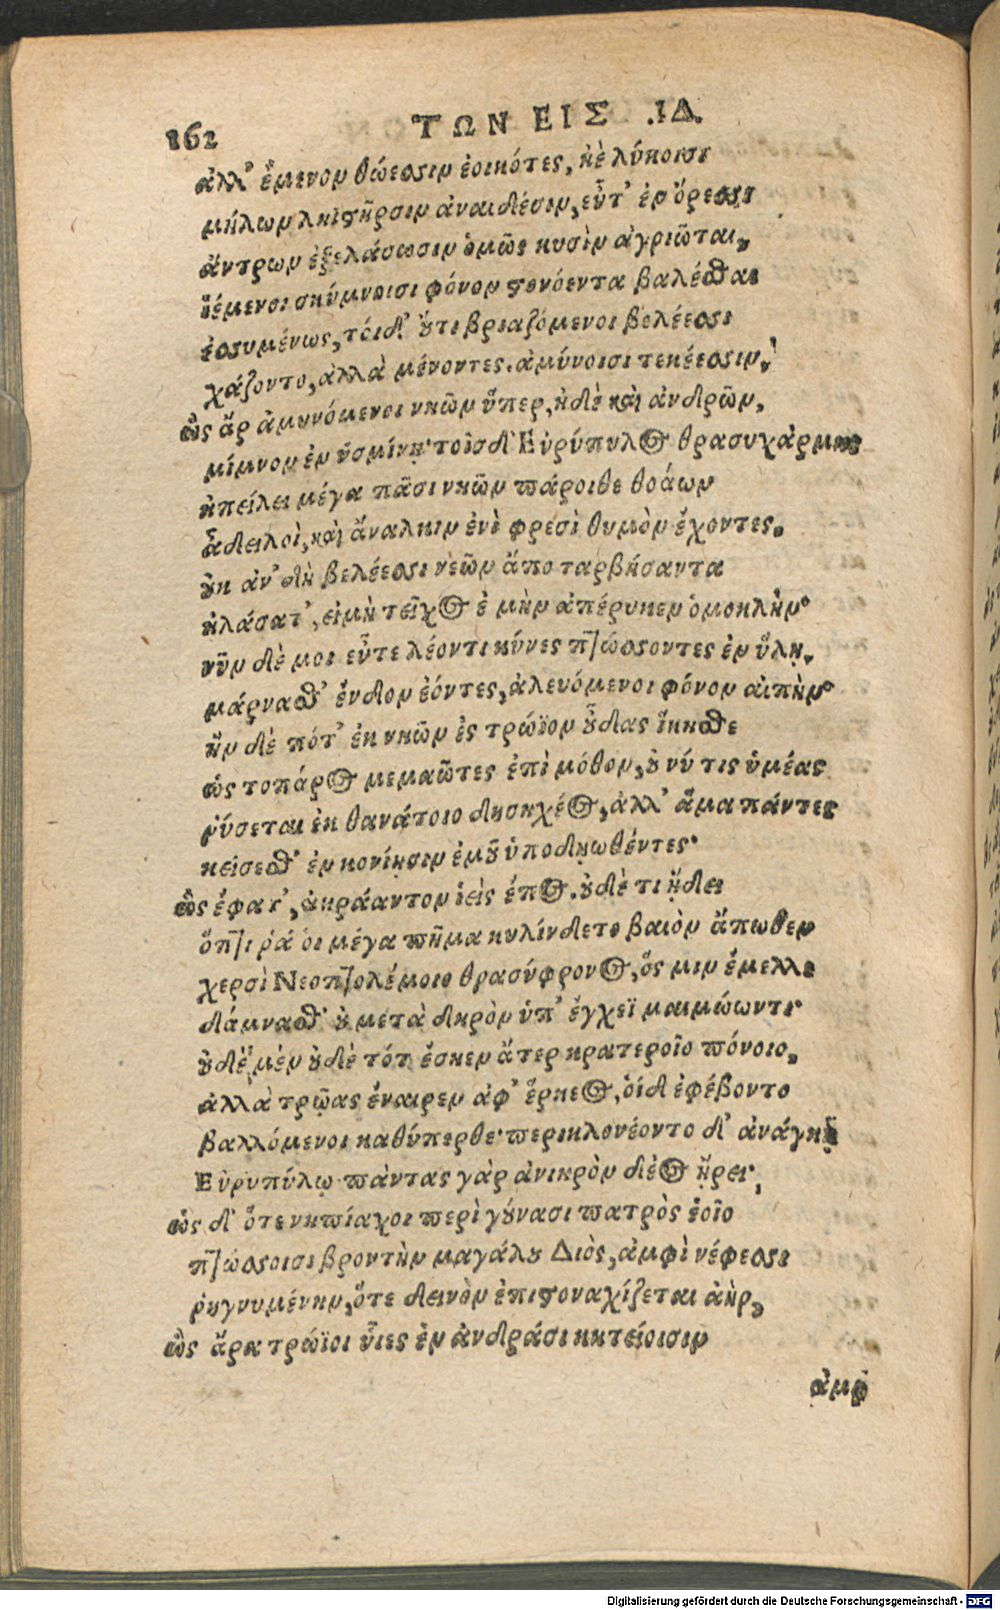 162 ΤΩΝ ΕΙΣ .ΙΔ.
ἀλλ' ἔμενον θώεσσιν ἐοικότες, ἠὲ λύκοισι
μήλων ληϊστῆρσιν ἀναιδέσιν, εὖτ' ἐν ὄρεσσι
ἄντρων ἐξελάσωσιν ὁμῶς κυσὶν ἀγριῶται,
ἱέμενοι σκύμνοισι φόνον στονόεντα βαλέσθαι
ἐσσυμένως, τόιδ' ὔτι βριαζόμενοι βελέεσσι
χάζοντο, ἀλλὰ μένοντες. ἀμύνοισι τεκέεσσιν,
ὣς ἄρ ἀμυνόμενοι νηῶν ὕπερ, ἠδὲ καὶ ἀνδρῶν,
μίμνον ἐν ὑσμίνῃ· τοῖσδ' Εὐρύπυλος θρασυχάρμης
ἠπείλει μέγα πᾶσι νηῶν πάροιθε θοάων
ἆ δειλοὶ, καὶ ἄναλκιν ἐνὶ φρεσὶ θυμὸν ἔχοντες,
οὐκ ἀν' δὴ βελέεσσι νεῶν ἄπο ταρβήσαντα
ἠλάσατ', εἰμὴ τεῖχος ἐ μὴν ἀπέρυκεν ὁμοκλήν·
νῦν δὲ μοι εὖτε λέοντι κύνες πτώσσοντες ἐν ὕλῃ,
μάρνασθ' ἔνδον ἐόντες, ἀλευόμενοι φόνον αἰπὴν·
ἢν δὲ πότ' ἐκ νηῶν ἐς τρώϊον οὖδας ἵκησθε
ὡς τοπάρος μεμαῶτες ἐπὶ μόθον, οὐ νύ τις ὑμέας
ῥύσεται ἐκ θανάτοιο δυσηχέος, ἀλλ' ἅμα πάντες
κείσεσθ' ἐν κονίῃσιν ἐμοῦ ὑποδῃωθέντες·
ὣς ἔφατ', ἀκράαντον ἱεὶς ἔπος. οὐδὲ τι ᾔδει
ὅττι ῥά οἱ μέγα πῆμα κυλίνδετο βαιὸν ἄπωθεν
χερσὶ Νεοπτολέμοιο θρασύφρονος, ὅς μιν ἔμελλε
δάμνασθ' οὐ μετὰ δηρὸν ὑπ' ἔγχεϊ μαιμώωντι·
οὐδὲ μὲν οὐδὲ τότ ἔσκεν ἄτερ κρατεροῖο πόνοιο,
ἀλλὰ τρῶας ἔναιρεν ἀφ' ἕρκεος, οἱδ ἐφέβοντο
βαλλόμενοι καθύπερθε· περικλονέοντο δ' ἀνάγκῃ
Εὐρυπύλῳ πάντας γὰρ ἀνικρὸν δέος ᾕρει·
ὡς δ' ὅτε νηπίαχοι περὶ γούνασι πατρὸς ἑοῖο
πτώσσοισι βροντὴν μαγάλου Διὸς, ἀμφὶ νέφεσσι
ῥηγνυμένην, ὅτε δεινὸν ἐπιστοναχίζεται ἀὴρ,
ὣς ἄρα τρώϊοι υἷες ἐν ἀνδράσι κητείοισιν
ἀμφ
Digitalisierung gefördert durch die Deutsche Forschungsgemeinschaft - DFG